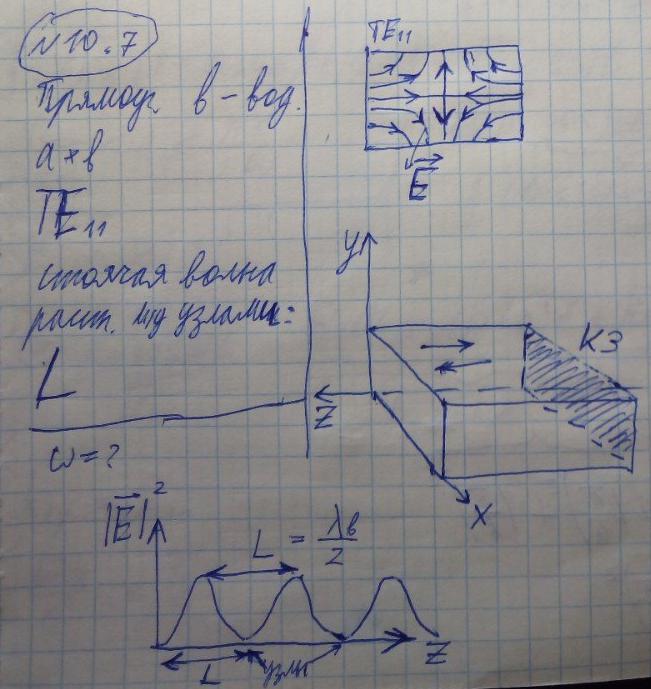 N 10.7
Прямоуг. в-вод.
a × b
TE₁₁
стоячая волна
раст. мд узлами:
L
ω = ?
TE₁₁
E⃗
y
КЗ
z
x
|E⃗|²
L = λв/2
z
L
узлы